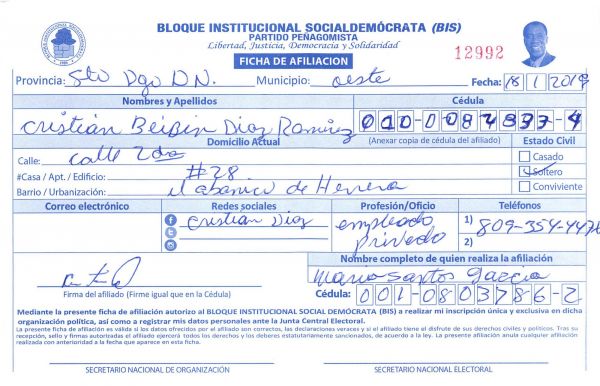 BLOQUE INSTITUCIONAL SOCIALDEMÓCRATA (BIS)
PARTIDO PEÑAGOMISTA
Libertad, Justicia, Democracia y Solidaridad
FICHA DE AFILIACION
12992
Provincia: Sto Dgo D.N. Municipio: oeste Fecha: 18/1/2019
Nombres y Apellidos Cédula
Cristián Diaz Ramírez 010-0082337-4
Domicilio Actual (Anexar copia de cédula del afiliado) Estado Civil
Calle: Calle 2da Casado
#Casa / Apt. / Edificio: #28 Soltero
Barrio / Urbanización: el abanico de Herrera Conviviente
Correo electrónico Redes sociales Profesión/Oficio Teléfonos
Cristian Diaz empleado privado 1) 809-354-447
2)
Nombre completo de quien realiza la afiliación
Mario Santos Garcia
Firma del afiliado (Firme igual que en la Cédula) Cédula: 001-0803786-2
Mediante la presente ficha de afiliación autorizo al BLOQUE INSTITUCIONAL SOCIAL DEMÓCRATA (BIS) a realizar mi inscripción única y exclusiva en dicha
organización política, así como a registrar mis datos personales ante la Junta Central Electoral.
La presente ficha de afiliación es válida si los datos ofrecidos por el afiliado son correctos, las declaraciones veraces y si el afiliado tiene el disfrute de sus derechos civiles y políticos. Tras su
recepción, sello y firmas autorizadas el afiliado ejercerá todos los derechos y los deberes estatutariamente sancionados, de acuerdo a la ley. La presente afiliación anula cualquier afiliación
realizada con anterioridad a la fecha que aparece en esta ficha.
SECRETARIO NACIONAL DE ORGANIZACIÓN SECRETARIO NACIONAL ELECTORAL